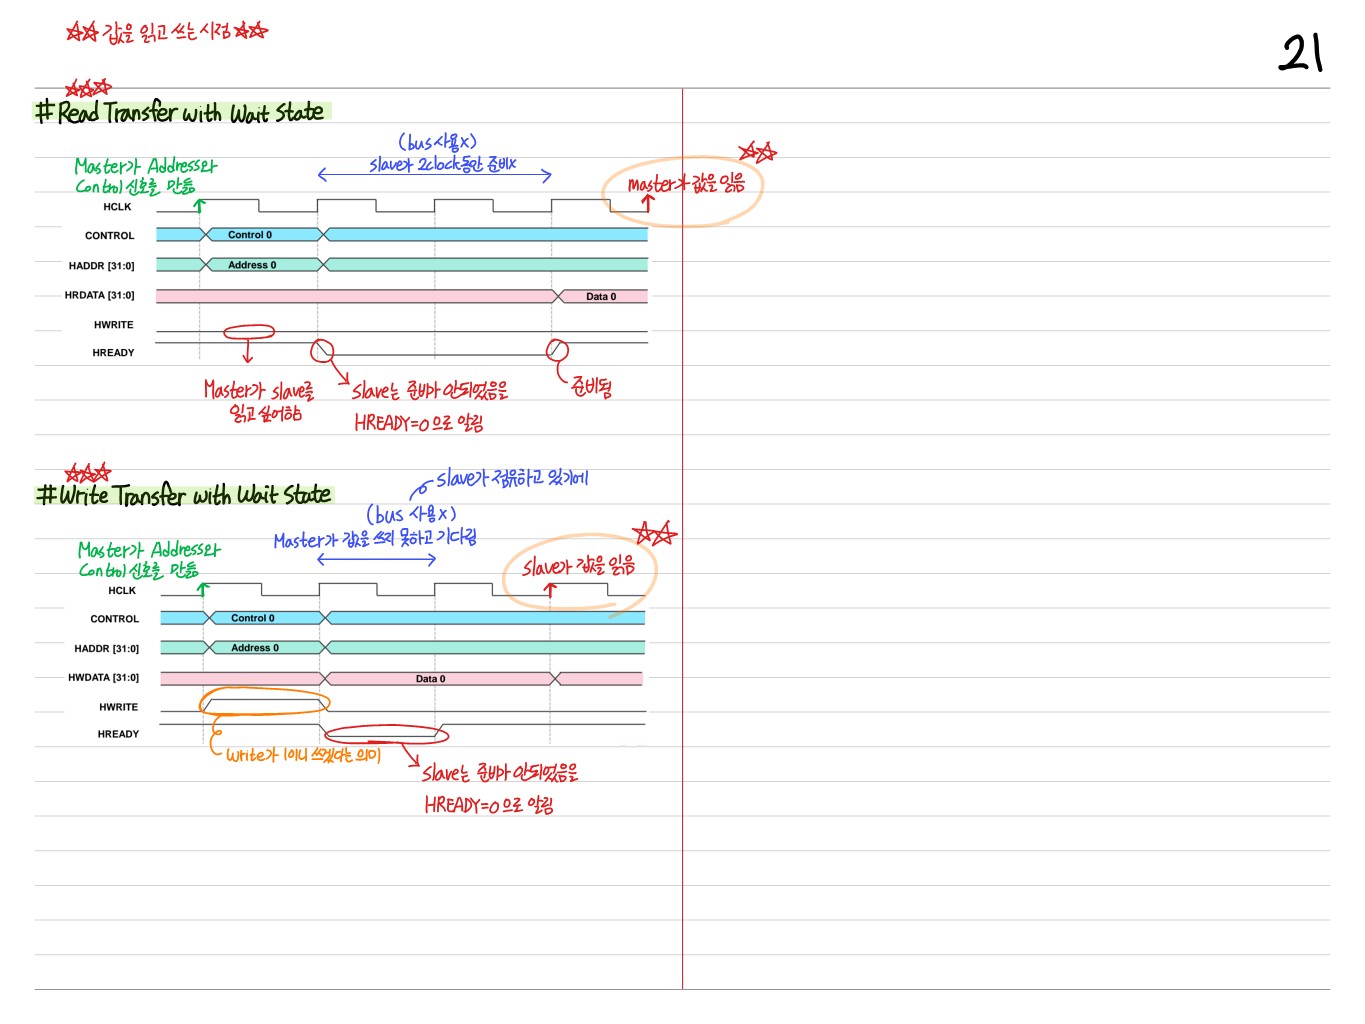 ☆☆ 값을 읽고 쓰는 시점 ☆☆
21
☆☆☆
#Read Transfer with Wait State
(bus 사용x)
slave가 2clock동안 준비x
☆☆
Master가 Address와
Control 신호를 만듦
master가 값을 읽음
HCLK
CONTROL
Control 0
HADDR [31:0]
Address 0
HRDATA [31:0]
Data 0
HWRITE
HREADY
Master가 slave를
읽고 싶어함
slave는 준비가 안되었음을
HREADY=0으로 알림
준비됨
☆☆☆
#Write Transfer with Wait State
slave가 점유하고 있기에
(bus 사용x)
Master가 값을 쓰지 못하고 기다림
☆☆
Master가 Address와
Control 신호를 만듦
slave가 값을 읽음
HCLK
CONTROL
Control 0
HADDR [31:0]
Address 0
HWDATA [31:0]
Data 0
HWRITE
HREADY
write가 1이니 쓰겠다는 의미
slave는 준비가 안되었음을
HREADY=0으로 알림